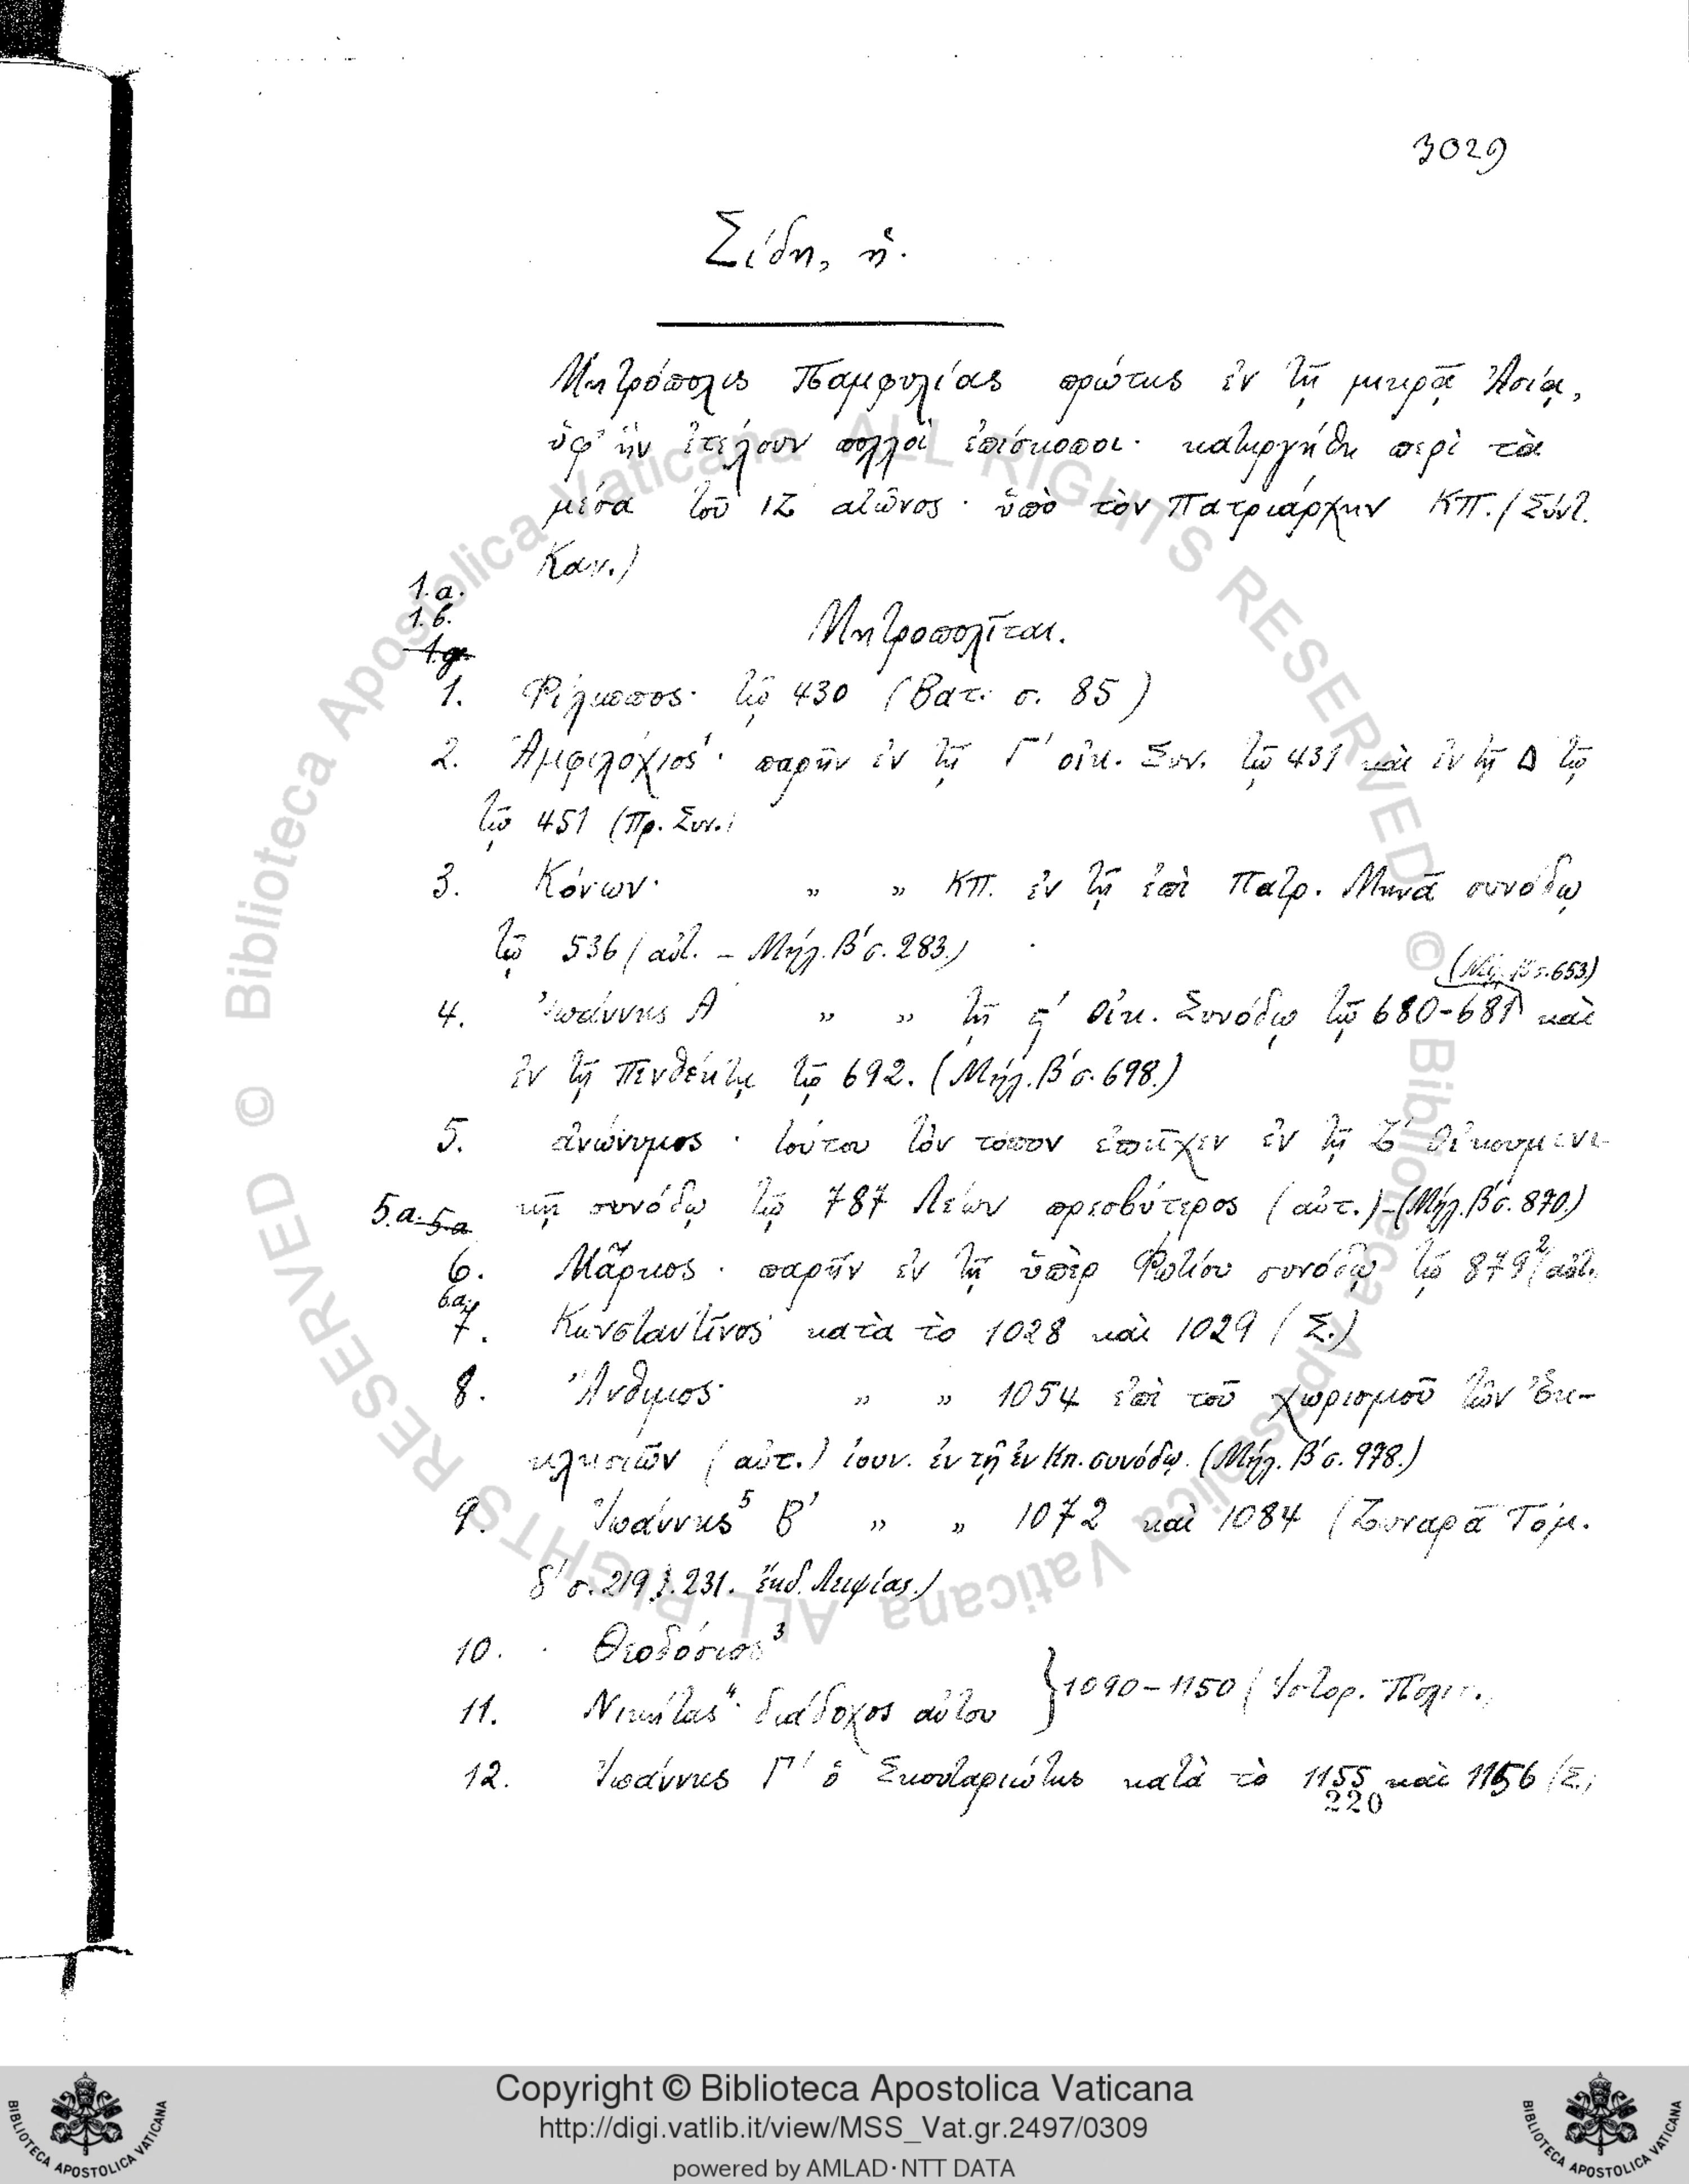 3029
Σίδη, ἡ.
Μητρόπολις Παμφυλίας πρώτης ἐν τῇ μικρᾷ Ἀσίᾳ,
ὑφ' ἣν ἐτέλουν πολλοὶ ἐπίσκοποι· κατηργήθη περὶ τὰ
μέσα τοῦ ΙΖ αἰῶνος· ὑπὸ τὸν Πατριάρχην ΚΠ. (Σύντ.
Καν.)
1.α.
1.β.
Μητροπολῖται.
1. Φίλιππος· τῷ 430 (Βατ. σ. 85)
2. Ἀμφιλόχιος¹· παρῆν ἐν τῇ Γ' οἰκ. Συν. τῷ 431 καὶ ἐν τῇ Δ τῷ
τῷ 451 (Πρ. Συν.)
3. Κόνων· " " ΚΠ. ἐν τῇ ἐπὶ Πατρ. Μηνᾶ συνόδῳ
τῷ 536 (αὐτ. - Μήλ. Β' σ. 283.)
(Μήλ. Β' σ. 653)
4. Ἰωάννης Α' " " τῇ ς' Οἰκ. Συνόδῳ τῷ 680-681 καὶ
ἐν τῇ Πενθέκτῃ τῷ 692. (Μήλ. Β' σ. 698.)
5. ἀνώνυμος· τούτου τὸν τόπον ἐπεῖχεν ἐν τῇ Ζ' Οἰκουμενι-
5.α. 5.α κῇ συνόδῳ τῷ 787 Λέων πρεσβύτερος (αὐτ.)-(Μήλ. Β' σ. 870.)
6. Μᾶρκος· παρῆν ἐν τῇ ὑπὲρ Φωτίου συνόδῳ τῷ 879² (αὐτ.
6.α.
7. Κωνσταντῖνος κατὰ τὸ 1028 καὶ 1029 (Σ.)
8. Ἄνθιμος· " " 1054 ἐπὶ τοῦ χωρισμοῦ τῶν Ἐκ-
κλησιῶν (αὐτ.) ἰουν. ἐν τῇ ἐν Κπ. συνόδῳ. (Μήλ. Β' σ. 978.)
9. Ἰωάννης⁵ Β' " " 1072 καὶ 1084 (Ζωναρᾶ Τόμ.
δ' σ. 219 231. ἔκδ. Λειψίας.)
10. Θεοδόσιος³
11. Νικήτας⁴· διάδοχος αὐτου } 1090-1150 (Ἱστορ.
12. Ἰωάννης Γ' ὁ Σκουταριώτης κατὰ τὸ 1155 καὶ 1156 (Σ.)
220
© Biblioteca Apostolica Vaticana ALL RIGHTS RESERVED © Biblioteca Apostolica Vaticana ALL RIGHTS RESERVED
Copyright © Biblioteca Apostolica Vaticana
http://digi.vatlib.it/view/MSS_Vat.gr.2497/0309
powered by AMLAD·NTT DATA
BIBLIOTECA APOSTOLICA VATICANA
BIBLIOTECA APOSTOLICA VATICANA